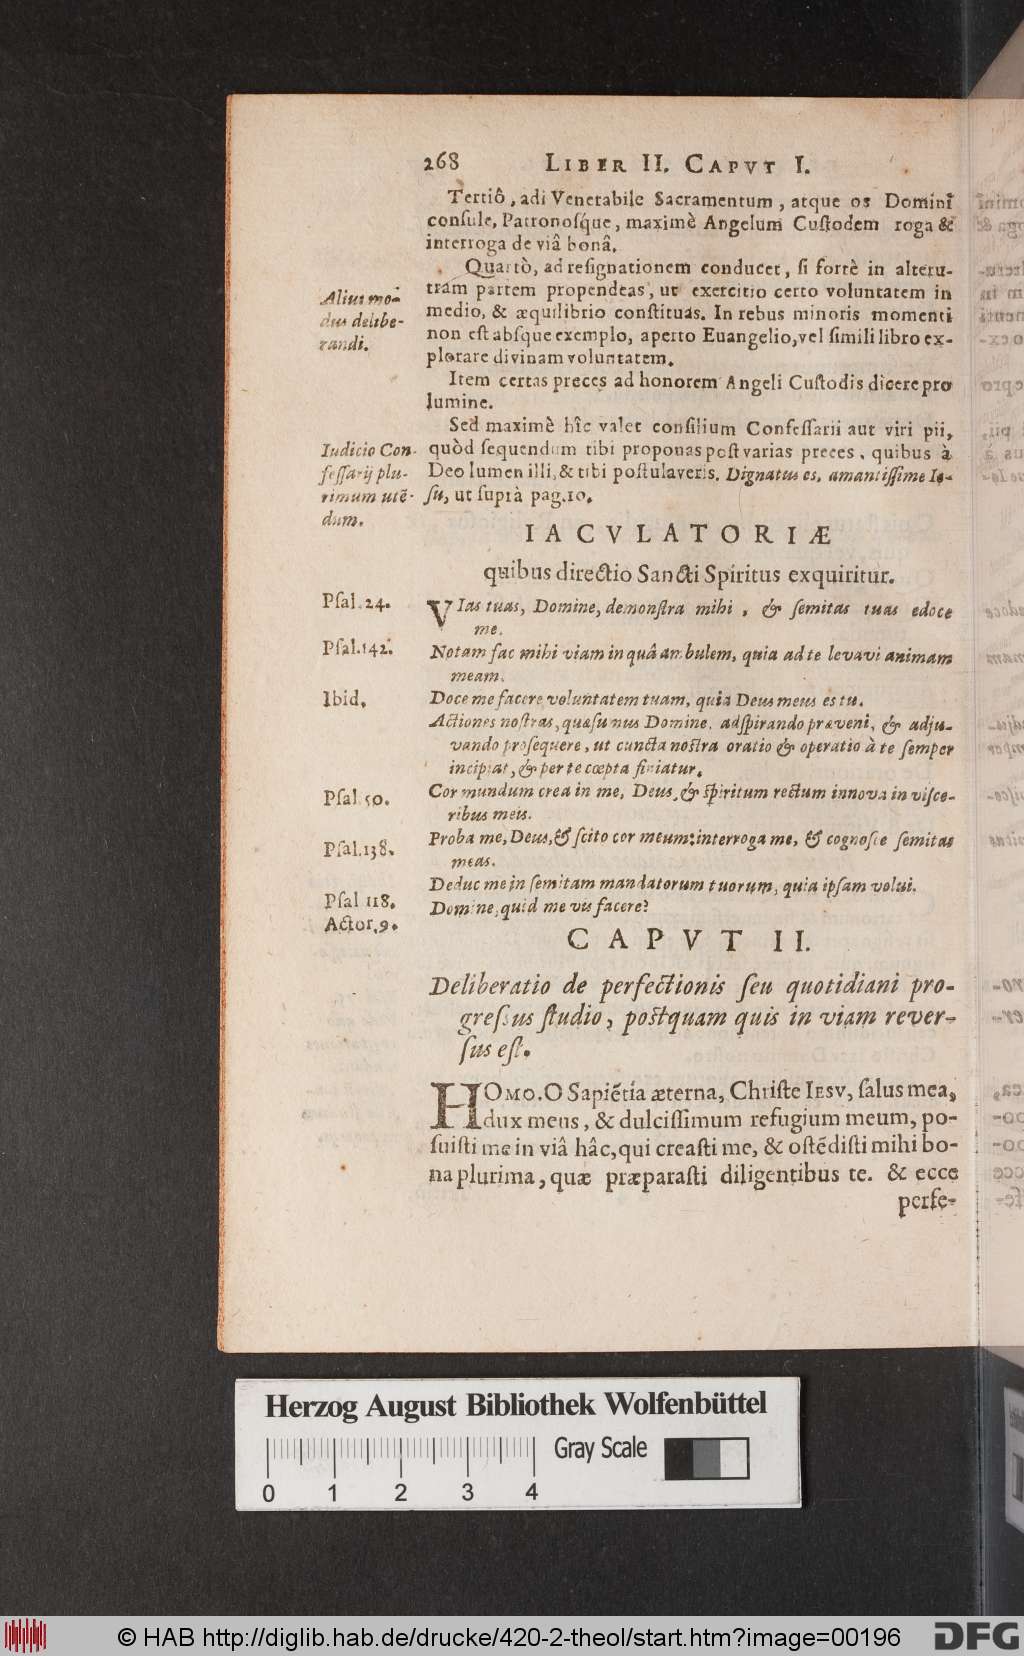 268 LIBER II. CAPVT I.
Tertiô, adi Venerabile Sacramentum, atque os Dominî
conſule, Patronoſq́ue, maximè Angelum Cuſtodem roga &
interroga de viâ bonâ.
Quartò, ad reſignationem conducet, ſi fortè in alteru-
tram partem propendeas, ut exercitio certo voluntatem in
Alius mo-
dus delibe-
randi.
medio, & æquilibrio conſtituas. In rebus minoris momenti
non eſt abſque exemplo, aperto Euangelio, vel ſimili libro ex-
plorare divinam voluntatem.
Item certas preces ad honorem Angeli Cuſtodis dicere pro
lumine.
Sed maximè hîc valet conſilium Confeſſarii aut viri pii,
Iudicio Con-
feſſarij plu-
rimum utē-
dum.
quòd ſequendum tibi proponas poſt varias preces, quibus à
Deo lumen illi, & tibi poſtulaveris. Dignatus es, amantiſſime Ie-
ſu, ut ſuprà pag. 10.
IACVLATORIÆ
quibus directio Sancti Spiritus exquiritur.
Pſal. 24.
VIas tuas, Domine, demonſtra mihi, & ſemitas tuas edoce
me.
Pſal. 142.
Notam fac mihi viam in quâ ambulem, quia ad te levavi animam
meam.
Ibid.
Doce me facere voluntatem tuam, quia Deus meus es tu.
Actiones noſtras, quæſumus Domine, adſpirando præveni, & adju-
vando proſequere, ut cuncta noſtra oratio & operatio à te ſemper
incipiat, & per te cœpta finiatur.
Pſal. 50.
Cor mundum crea in me, Deus, & ſpiritum rectum innova in viſce-
ribus meis.
Pſal. 138.
Proba me, Deus, & ſcito cor meum: interroga me, & cognoſce ſemitas
meas.
Pſal 118.
Deduc me in ſemitam mandatorum tuorum, quia ipſam volui.
Actor. 9.
Domine, quid me vis facere?
CAPVT II.
Deliberatio de perfectionis ſeu quotidiani pro-
greſſus ſtudio, poſtquam quis in viam rever-
ſus eſt.
HOMO. O Sapiētia æterna, Chriſte IESV, ſalus mea,
dux meus, & dulciſſimum refugium meum, po-
ſuiſti me in viâ hâc, qui creaſti me, & oſtēdiſti mihi bo-
na plurima, quæ præparaſti diligentibus te. & ecce
perfe-
Herzog August Bibliothek Wolfenbüttel
Gray Scale
0 1 2 3 4
© HAB http://diglib.hab.de/drucke/420-2-theol/start.htm?image=00196
DFG